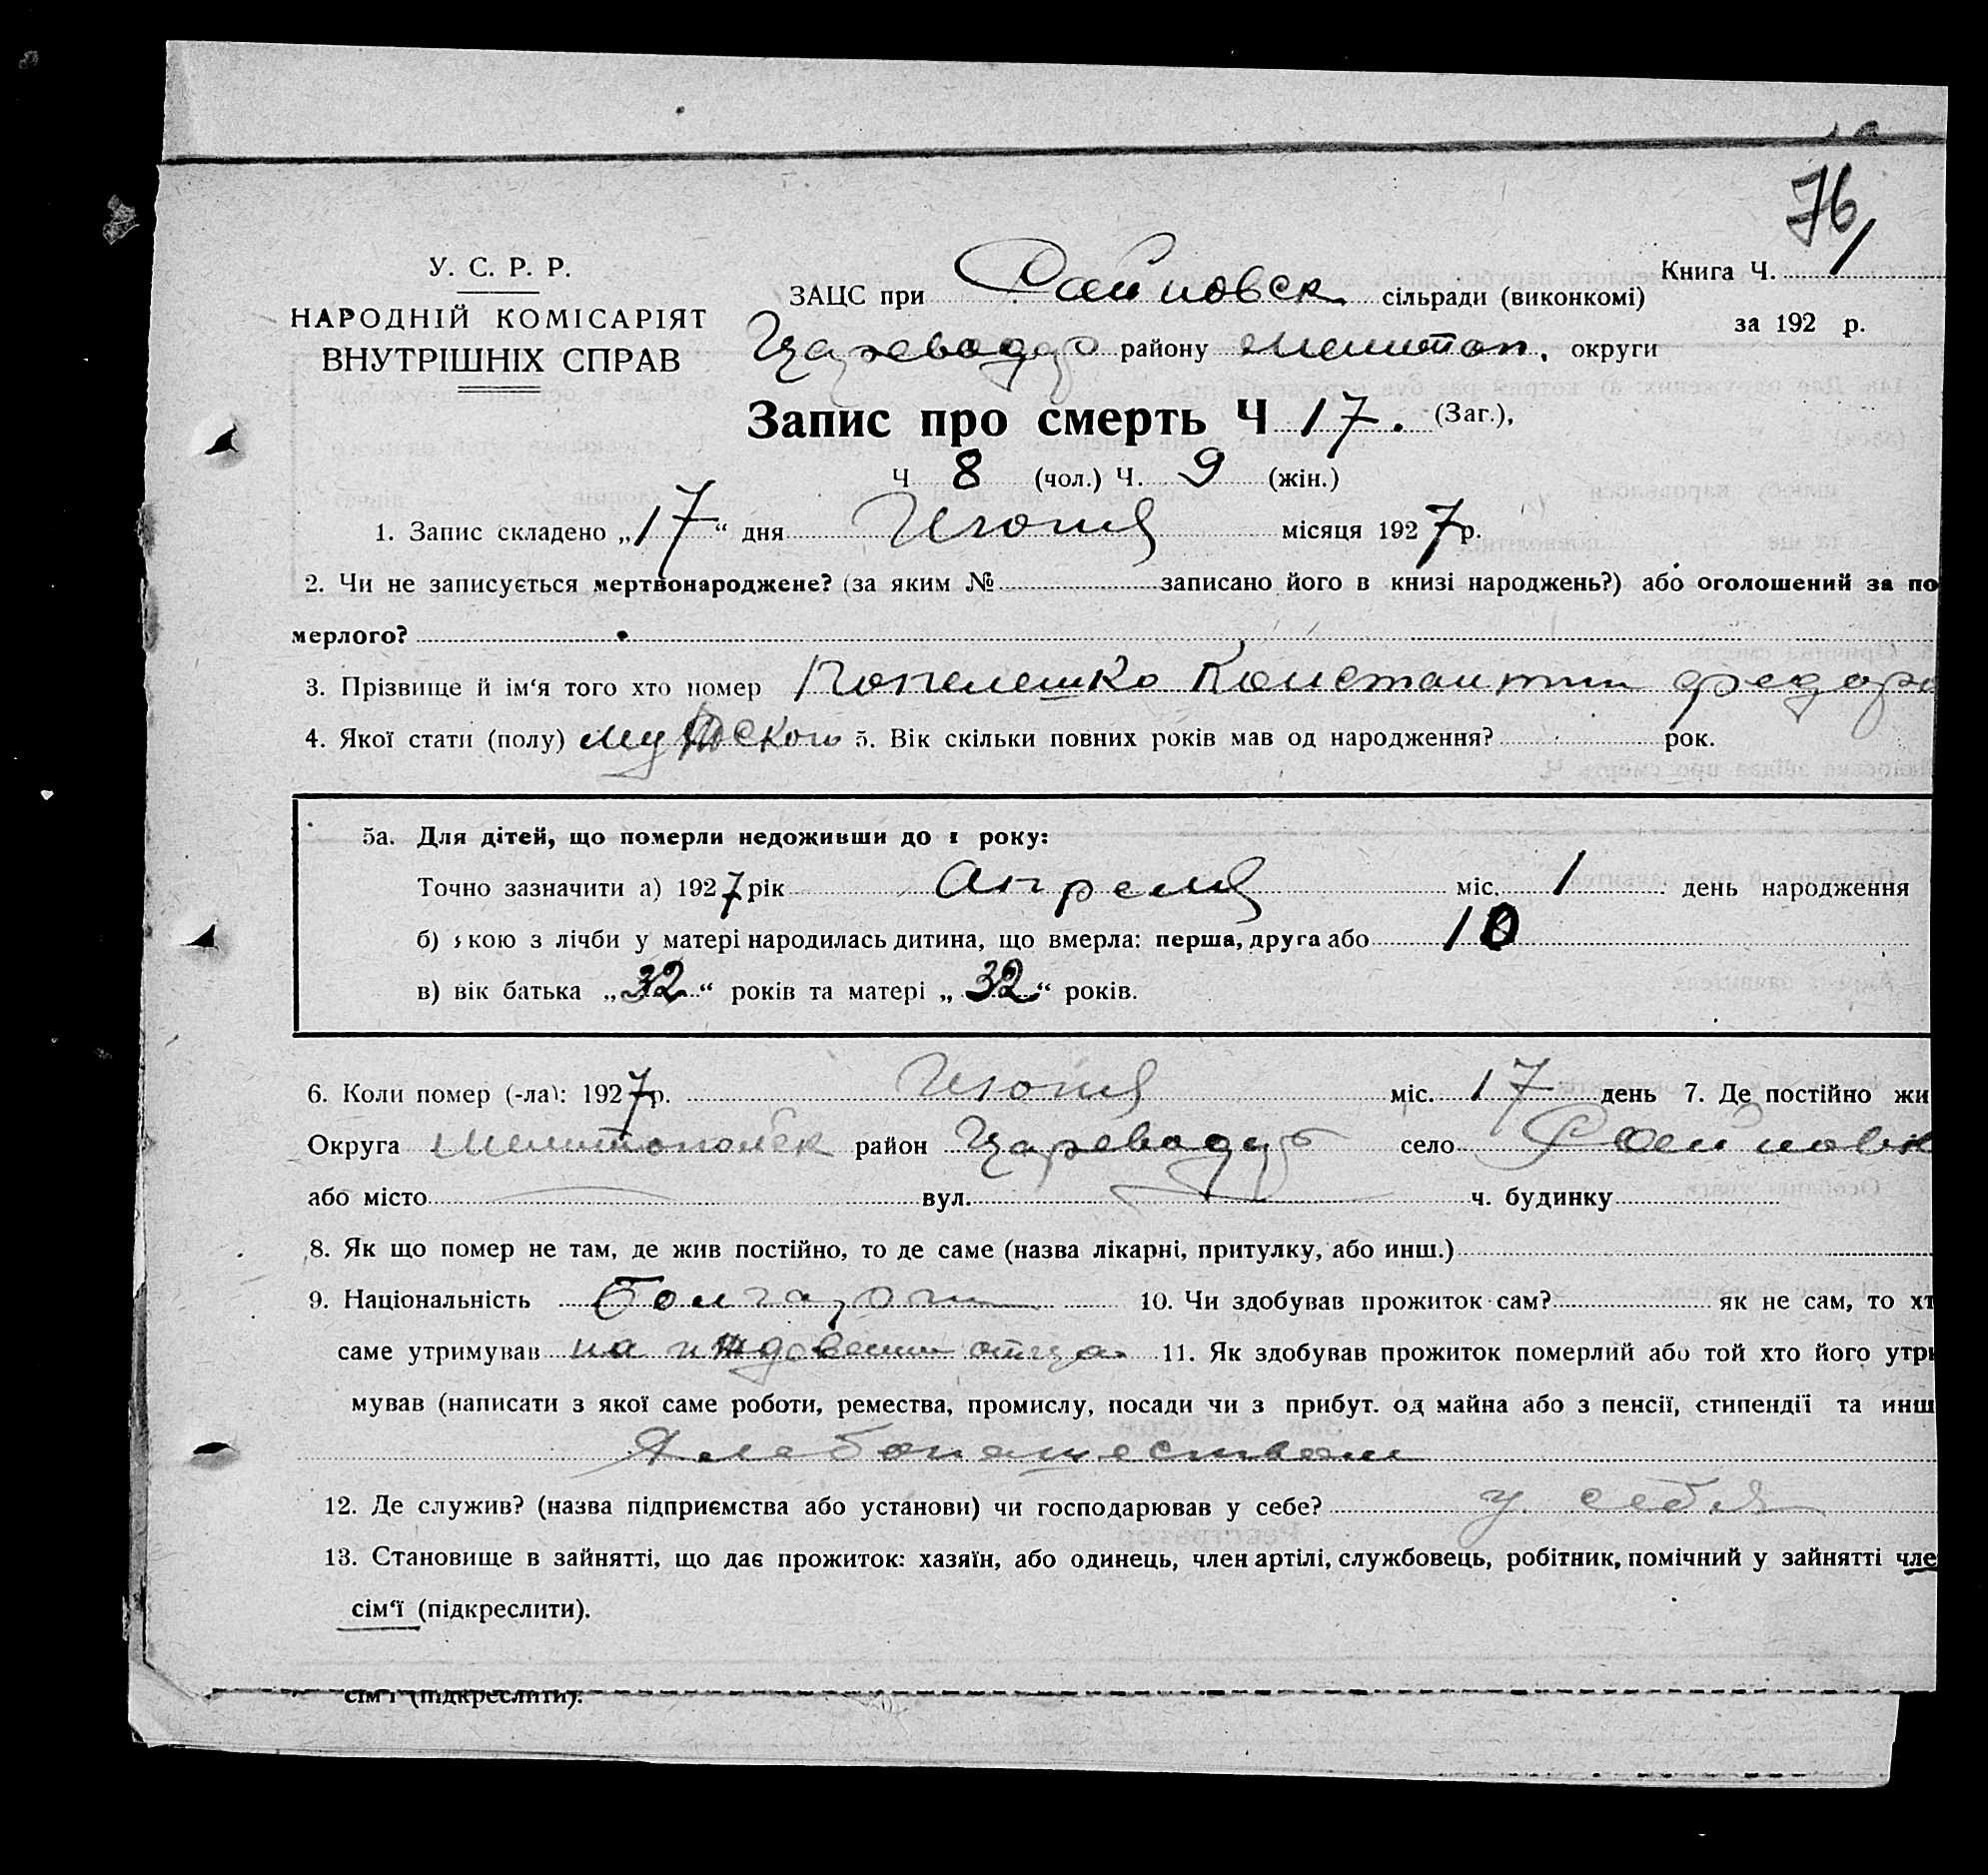 76
У. С. Р. Р.
НАРОДНІЙ КОМІСАРІЯТ
ВНУТРІШНІХ СПРАВ
Книга Ч. 1
за 192 р.
ЗАЦС при Райновск сільради (виконкомі)
району Мелитоп. округи
Запис про смерть Ч 17. (Заг.),
Ч 8 (чол.) Ч. 9 (жін.)
1. Запис складено „17“ дня Июня місяця 1927 р.
2. Чи не записується мертвонароджене? (за яким № записано його в книзі народжень?) або оголошений за по
мерлого?
3. Прізвище й ім‘я того хто помер Попелешко Константин Федоро
4. Якої стати (полу) мужского 5. Вік скільки повних років мав од народження? рок.
5а. Для дітей, що померли недоживши до 1 року:
Точно зазначити а) 1927 рік Апреля міс. 1 день народження
б) якою з лічби у матері народилась дитина, що вмерла: перша, друга або 10
в) вік батька „32“ років та матері „32“ років.
6. Коли помер (-ла): 1927 р. Июня міс. 17 день 7. Де постійно жи
Округа Мелитопольск район село Райновк
або місто вул. ч. будинку
8. Як що помер не там, де жив постійно, то де саме (назва лікарні, притулку, або инш.)
9. Національність Болгарин 10. Чи здобував прожиток сам? як не сам, то хт
саме утримував на иждовении отца 11. Як здобував прожиток померлий або той хто його утри
мував (написати з якої саме роботи, ремества, промислу, посади чи з прибут. од майна або з пенсії, стипендії та инш
Хлебопашеством
12. Де служив? (назва підприємства або установи) чи господарював у себе? у себя
13. Становище в зайнятті, що дає прожиток: хазяїн, або одинець, член артілі, службовець, робітник, помічний у зайнятті чле
сім‘ї (підкреслити).
сім‘ї (підкреслити).